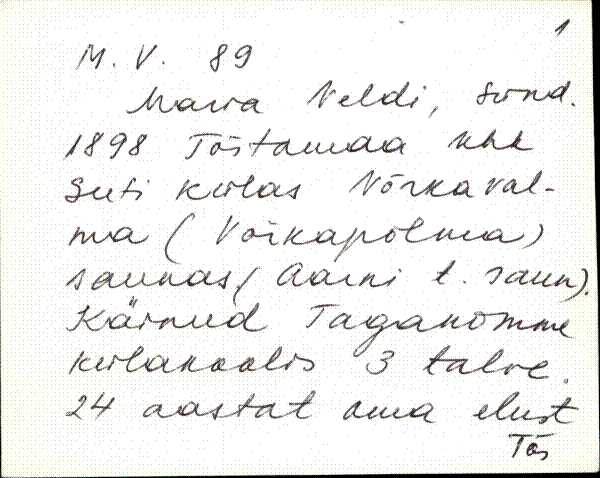 1
M. V. 89
Maria Veldi, sünd.
1898 Tõstamaa khk
Suti külas Võrkaval-
ma (Võikapõlma)
saunas (Aarni t. saun).
Käinud Taganõmme
külakoolis 3 talve.
24 aastat oma elust
Tõs